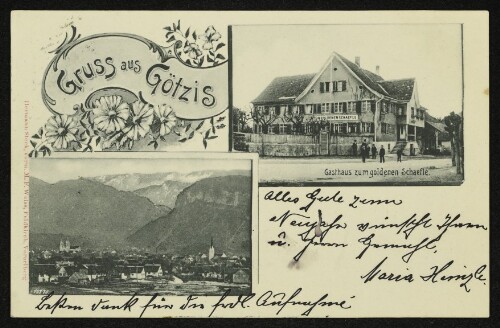 Gruss aus Götzis
Gasthaus zum goldenen Schaefle.
Alles Gute zum
Neujahr wünscht Ihnen
u. Ihrem Gemahl.
Maria Heinzle.
Besten Dank für die frdl. Aufnahme